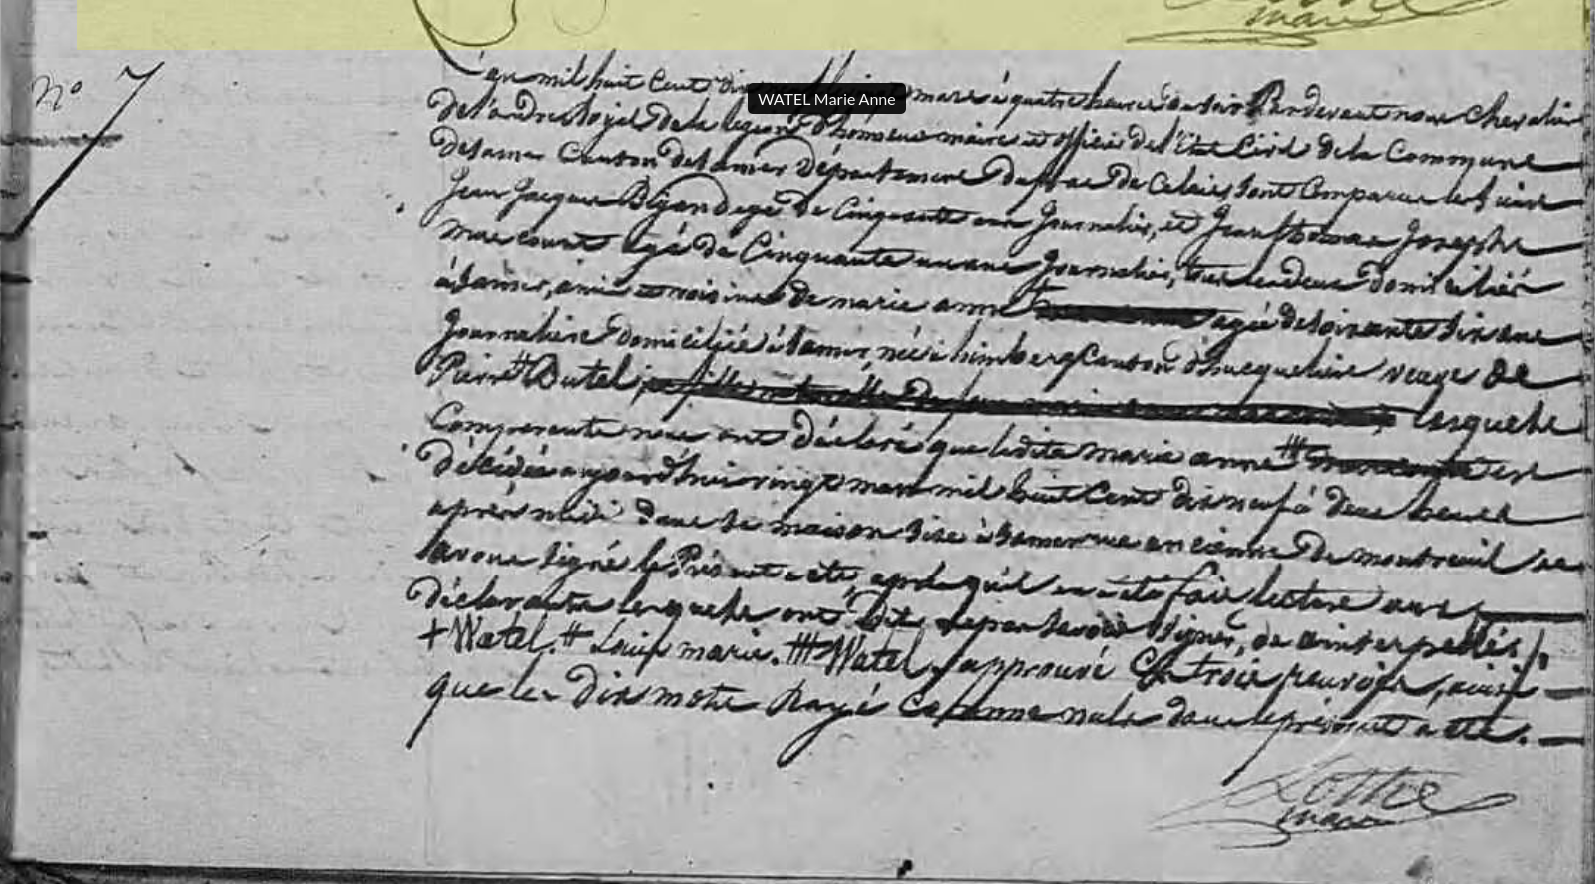 mare
nº 7
L'an mil huit Cent dix
WATEL Marie Anne
mars à quatre heures du soir Pardevant nous Chevalier
de l'ordre Royal de la légion d'honneur maire et officier de l'Etat Civil de la Commune
de Samer Canton de Samer Département du pas de Calais, sont Comparus les sieurs
Jean Jacques agé de Cinquante ans Journalier, et Jean Thomas Josephe
Marcourt agé de Cinquante un ans Journalier, tous les deux domiciliés
à Samer, amis et voisins de marie anne + agée de soixante dix ans
Journaliere domiciliée à Samer, née à himberg Canton d'hucqueliers veuve de
Pierre # Dutel, lesquels
Comparants nous ont déclaré que ladite marie anne ⧻ est
décédée aujourd'hui vingt mars mil huit Cent dix neuf à deux heures
après midi dans sa maison sise à Samer rue ancienne de montreuil et
avons signé le Présent acte, après qu'il en a été fait lecture aux
déclarants lesquels ont dit ne pas savoir signer, de ce interpellés /.
+ Watel. # Louis marie. ⧻ Watel, approuvé les trois renvois, ainsi
que les dix mots Rayé Comme nuls dans le présent acte.
Lothe
maire